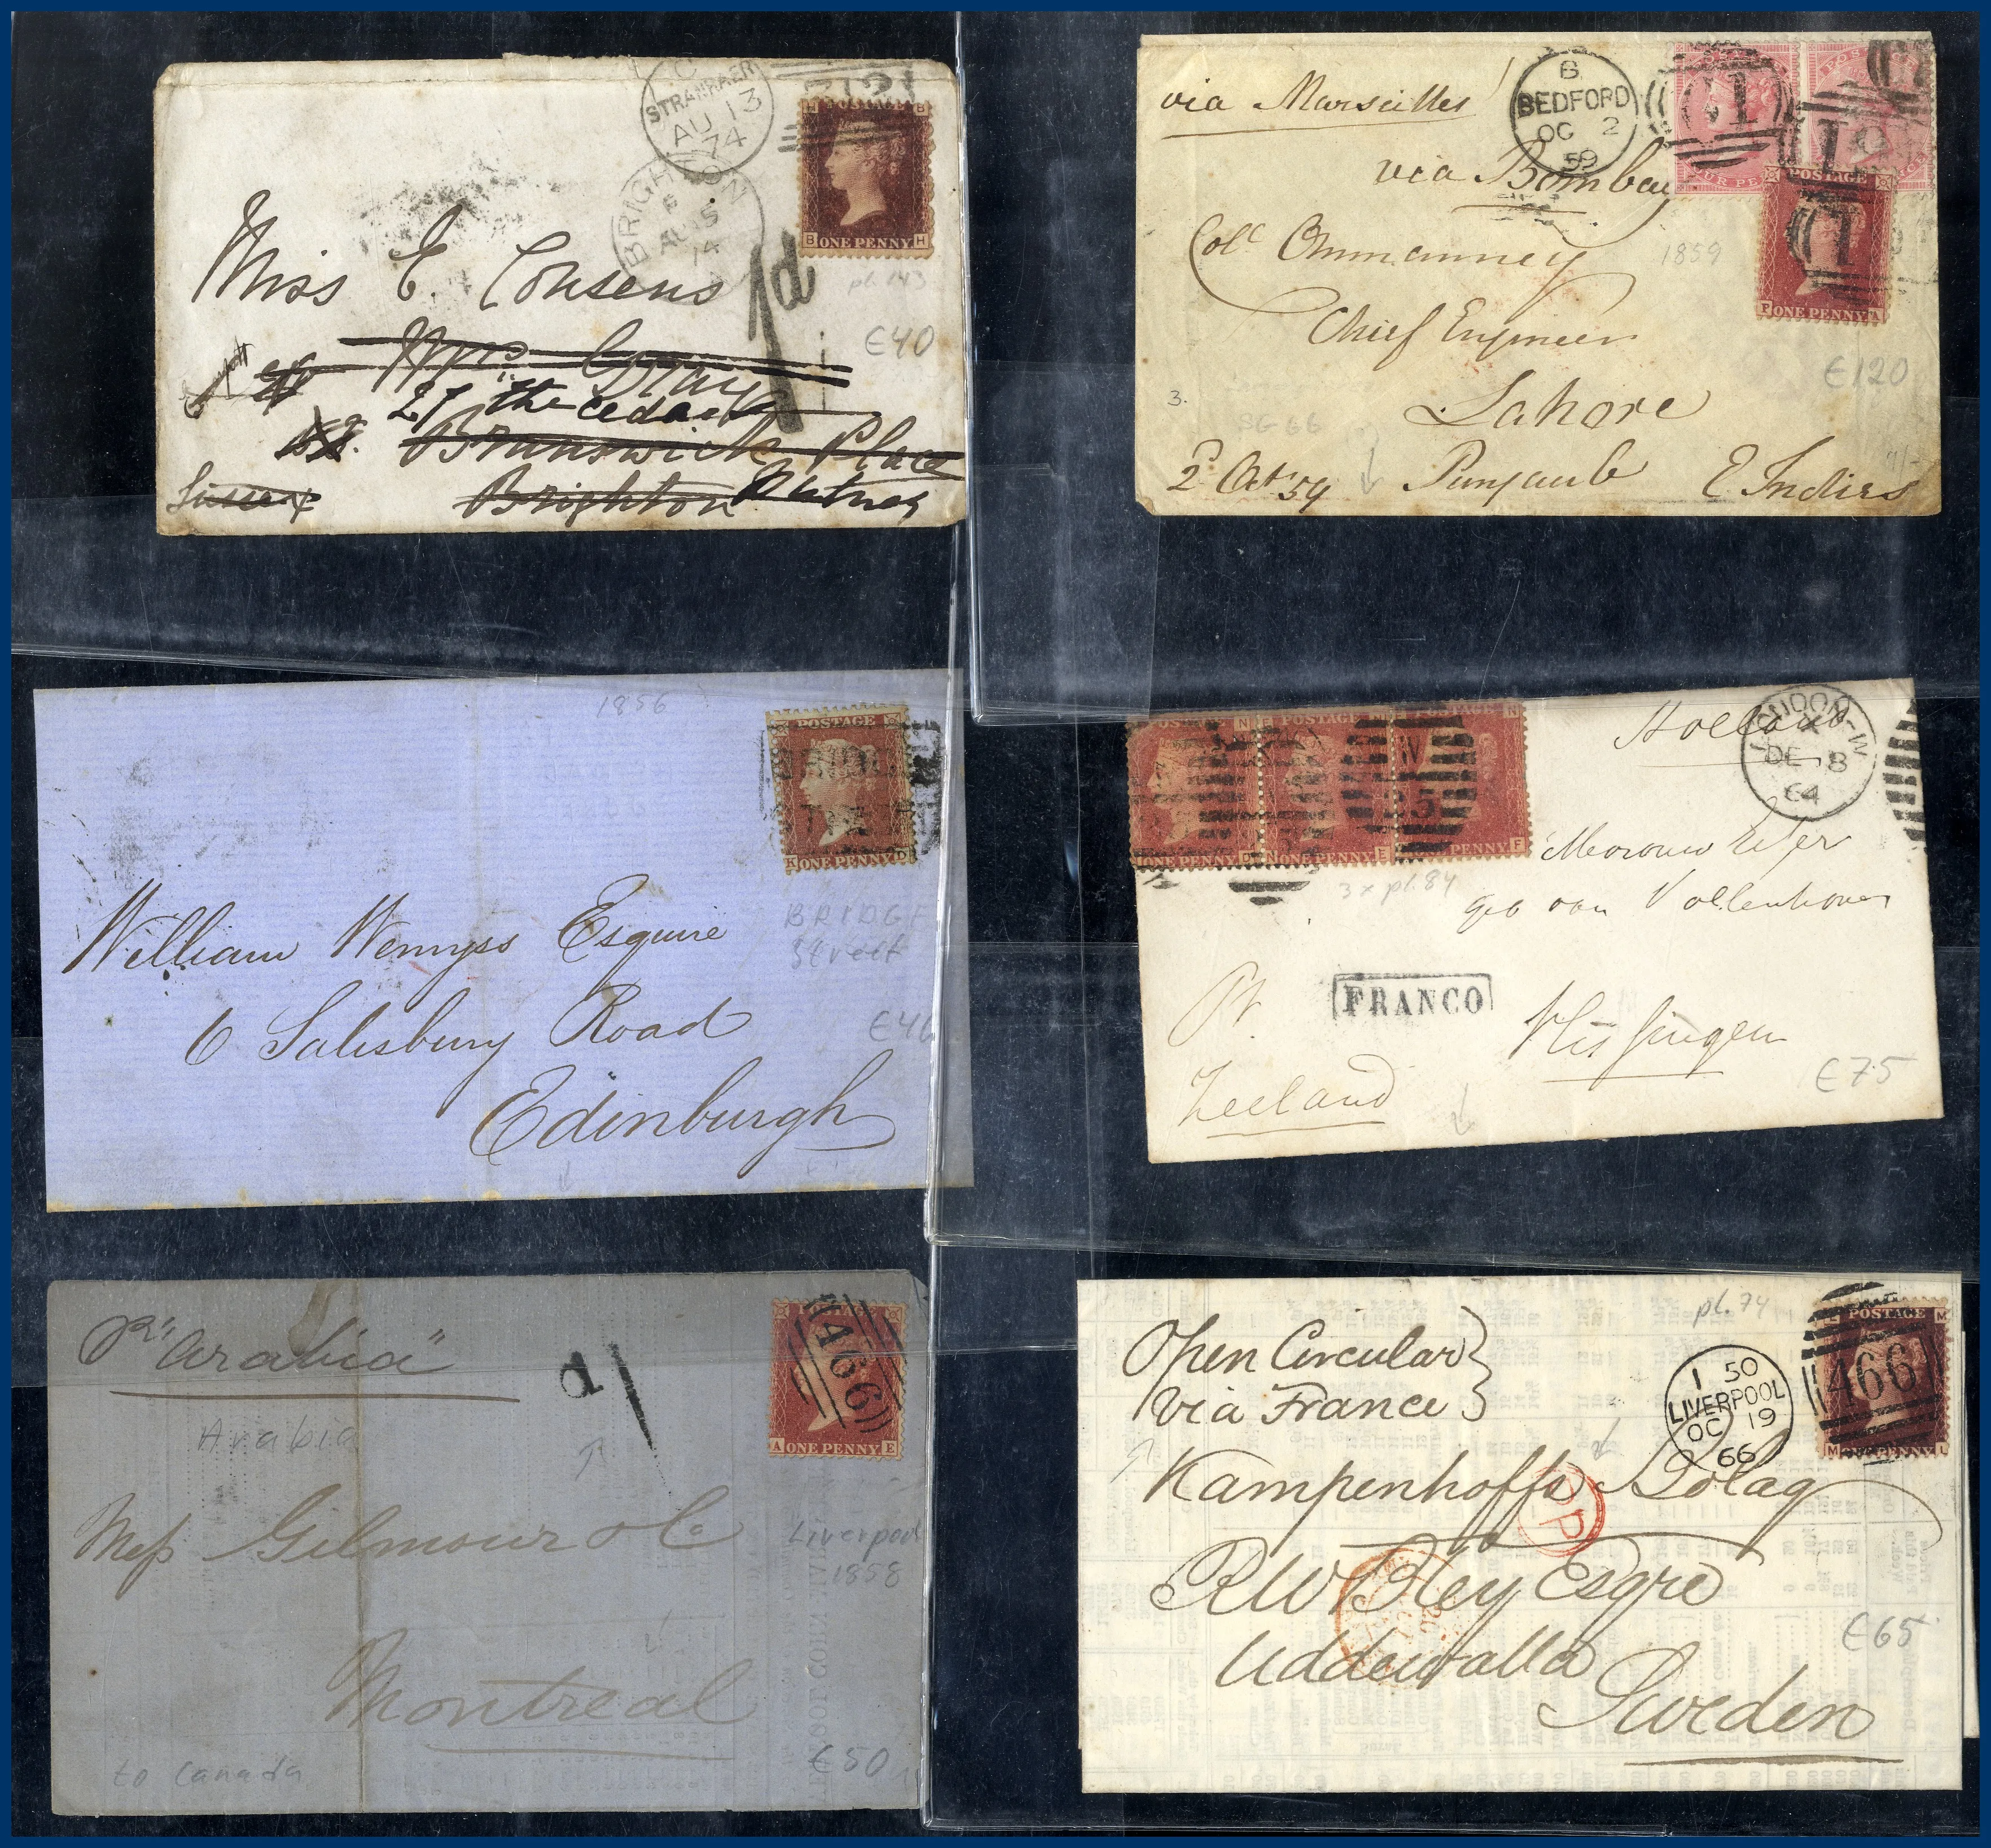 C
STRANRAER
AU 13
74
BRIGHTON
AU 15
74
B
ONE PENNY
B H
pl. 143
1d
€40
Miss E. Cousens
Mrs Gray
27 "the cedars
Brunswick Place
Sussex Brighton Putney
via Marseilles
via Bombay
B
BEDFORD
OC 2
59
POSTAGE
P ONE PENNY A
Col. Ommanney
1859
Chief Engineer
€120
Lahore
3.
SG 66
2d Oct 59 Punjaub E Indies
1856
POSTAGE
K ONE PENNY D
BRIDGE
Street
William Wemyss Esquire
€40
6 Salisbury Road
Edinburgh
Holland
LONDON-W
X
DE 8
64
POSTAGE N
POSTAGE
POSTAGE N
W
25
ONE PENNY D
ONE PENNY E
ONE PENNY F
3 x pl. 84
Mevrouw
geb van Vollenhoven
FRANCO
Vlissingen
Zeeland
€75
Pr "Arabia"
Arabia
1d
466
A ONE PENNY E
Messrs Gilmour & Co
Liverpool
1858
Montreal
to Canada
€50
Open Circular
via France
pl. 74
1 50
LIVERPOOL
OC 19
66
POSTAGE M
466
M PENNY L
Kampenhoffs Bolag
PP
R W Bley Esqre
Uddewalla
€65
Sweden